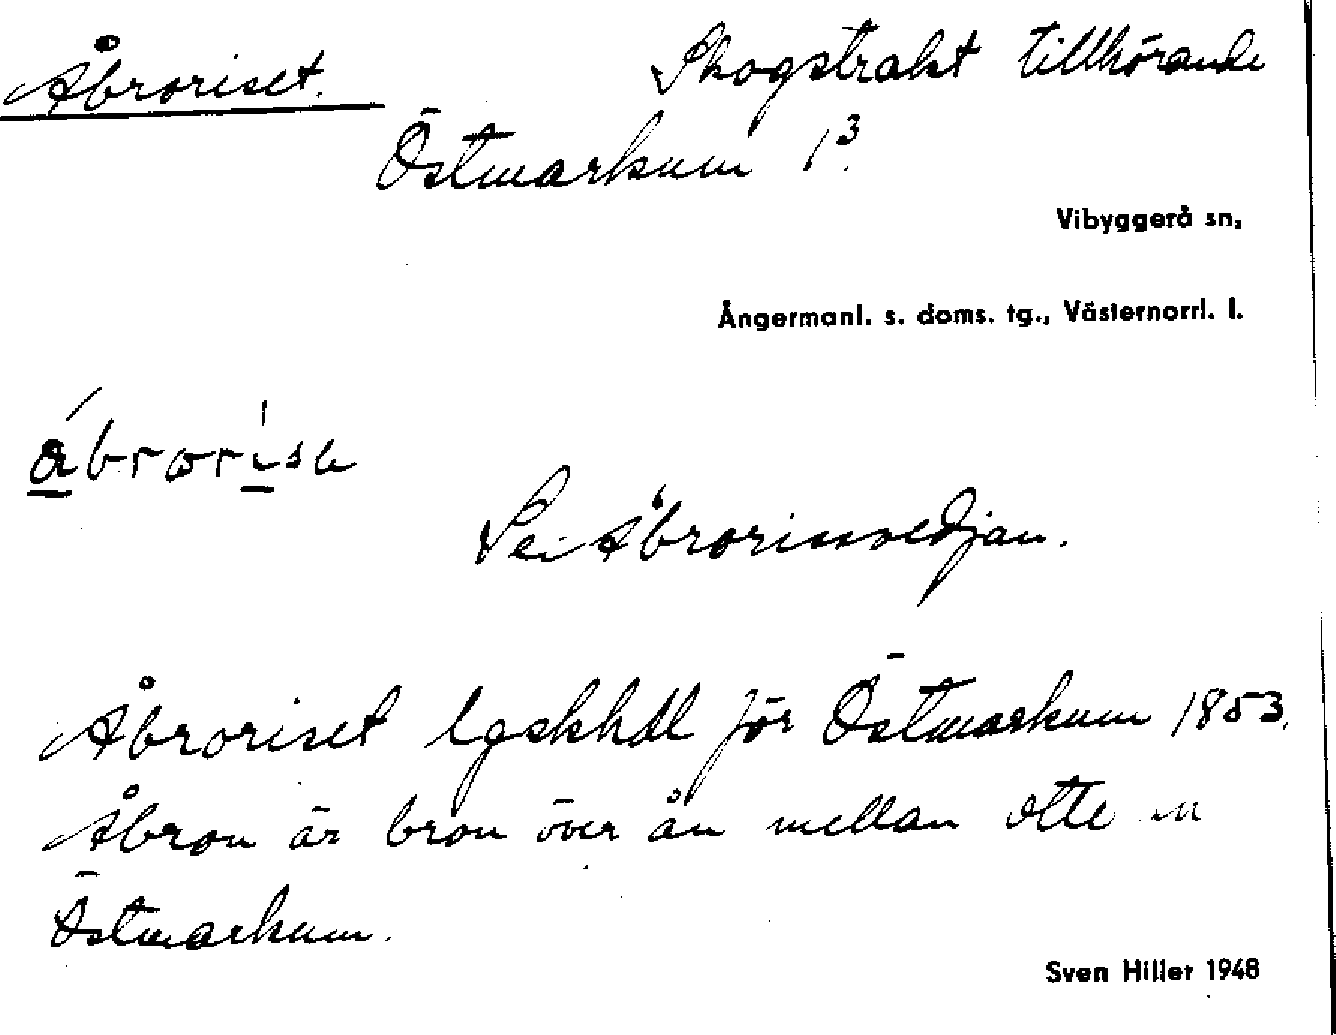 Åbroriset. Skogstrakt tillhörande
Östmarkum 1³.
Vibyggerå sn,
Ångermanl. s. doms. tg., Västernorrl. l.
åbrorisɩ
Se Åbrorissvedjan.
Åbroriset lgskhdl för Östmarkum 1853.
Åbron är bron över ån mellan Otte
Östmarkum.
Sven Hillet 1948